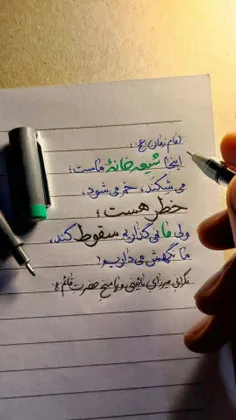 امام زمان عج:
اینجا شیعه‌خانهٔ ماست،
می‌شکند، خم می‌شود،
خطر هست؛
ولی ما نمی‌گذاریم سقوط کند،
ما نگهش می‌داریم!
میرزای نائینی و پاسخ حضرت قائم عج